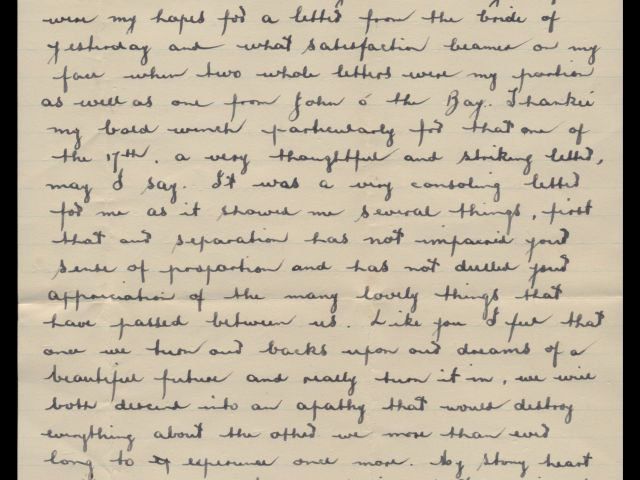 were my hopes for a letter from the bride of
yesterday and what satisfaction beamed on my
face when two whole letters were my portion
as well as one from John o' the Bay. Thankee
my bold wench particularly for that one of
the 17th, a very thoughtful and striking letter,
may I say. It was a very consoling letter
for me as it showed me several things, first
that our separation has not impaired your
sense of proportion and has not dulled your
appreciation of the many lovely things that
have passed between us. Like you I feel that
once we turn our backs upon our dreams of a
beautiful future and really turn it in, we will
both descend into an apathy that would destroy
everything about the other we more than ever
long to experience once more. My strong heart